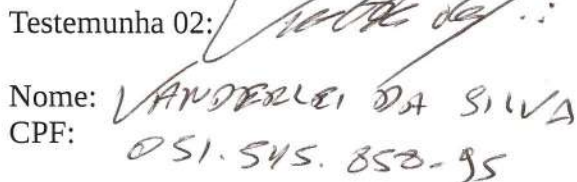 Testemunha 02:
Nome: VANDERLEI DA SILVA
CPF:
051.545.858-95